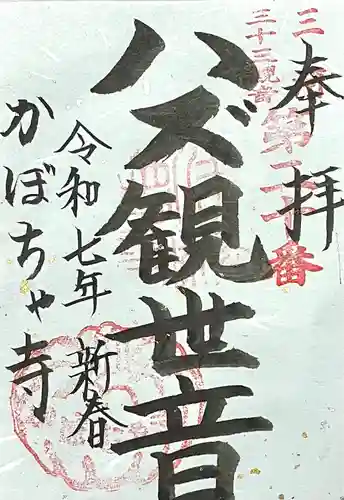 奉拝
三河
三十三観音
第二十番
ハズ観世音
令和七年 新春
かぼちゃ寺